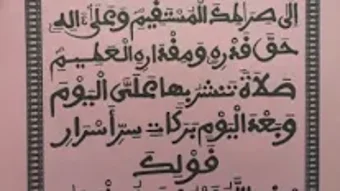 إلى صراطك المستقيم وعلى ءاله
حق قدره ومقداره العظيم
صلاة تنشر بها على اليوم
وبعد اليوم بركات سر أسرار
قولك